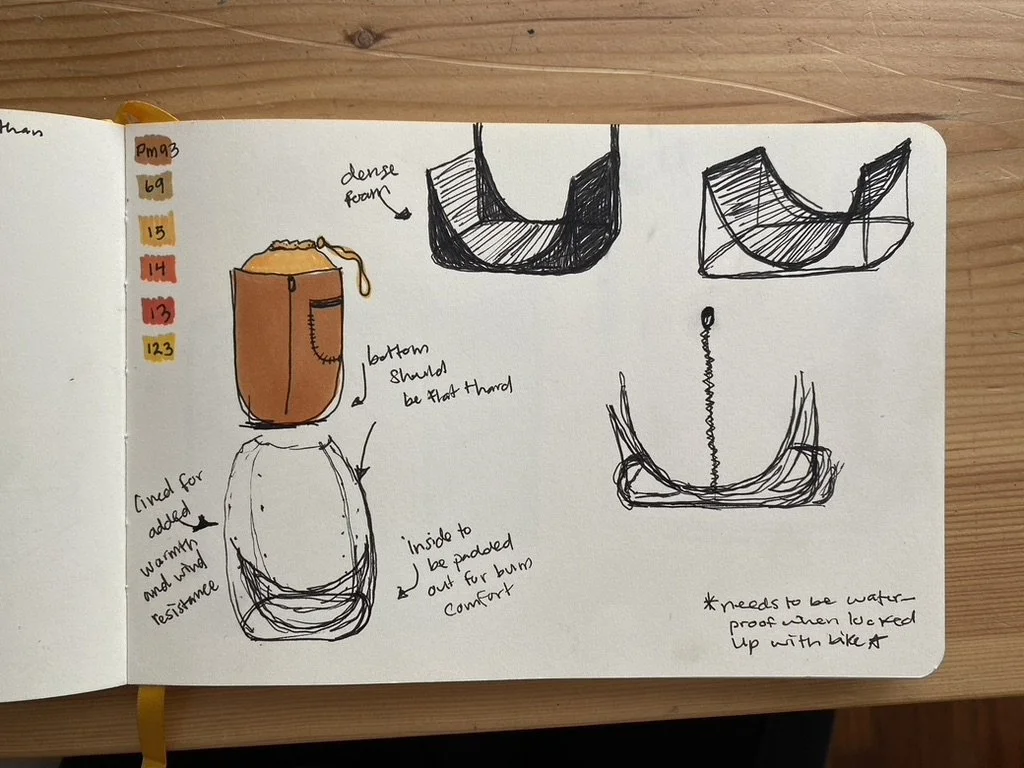 than
PM93
69
15
14
13
123
dense
foam
bottom
should
be flat + hard
lined for
added
warmth
and wind
resistance
inside to
be padded
out for bum
comfort
*needs to be water-
proof when locked
up with bike*